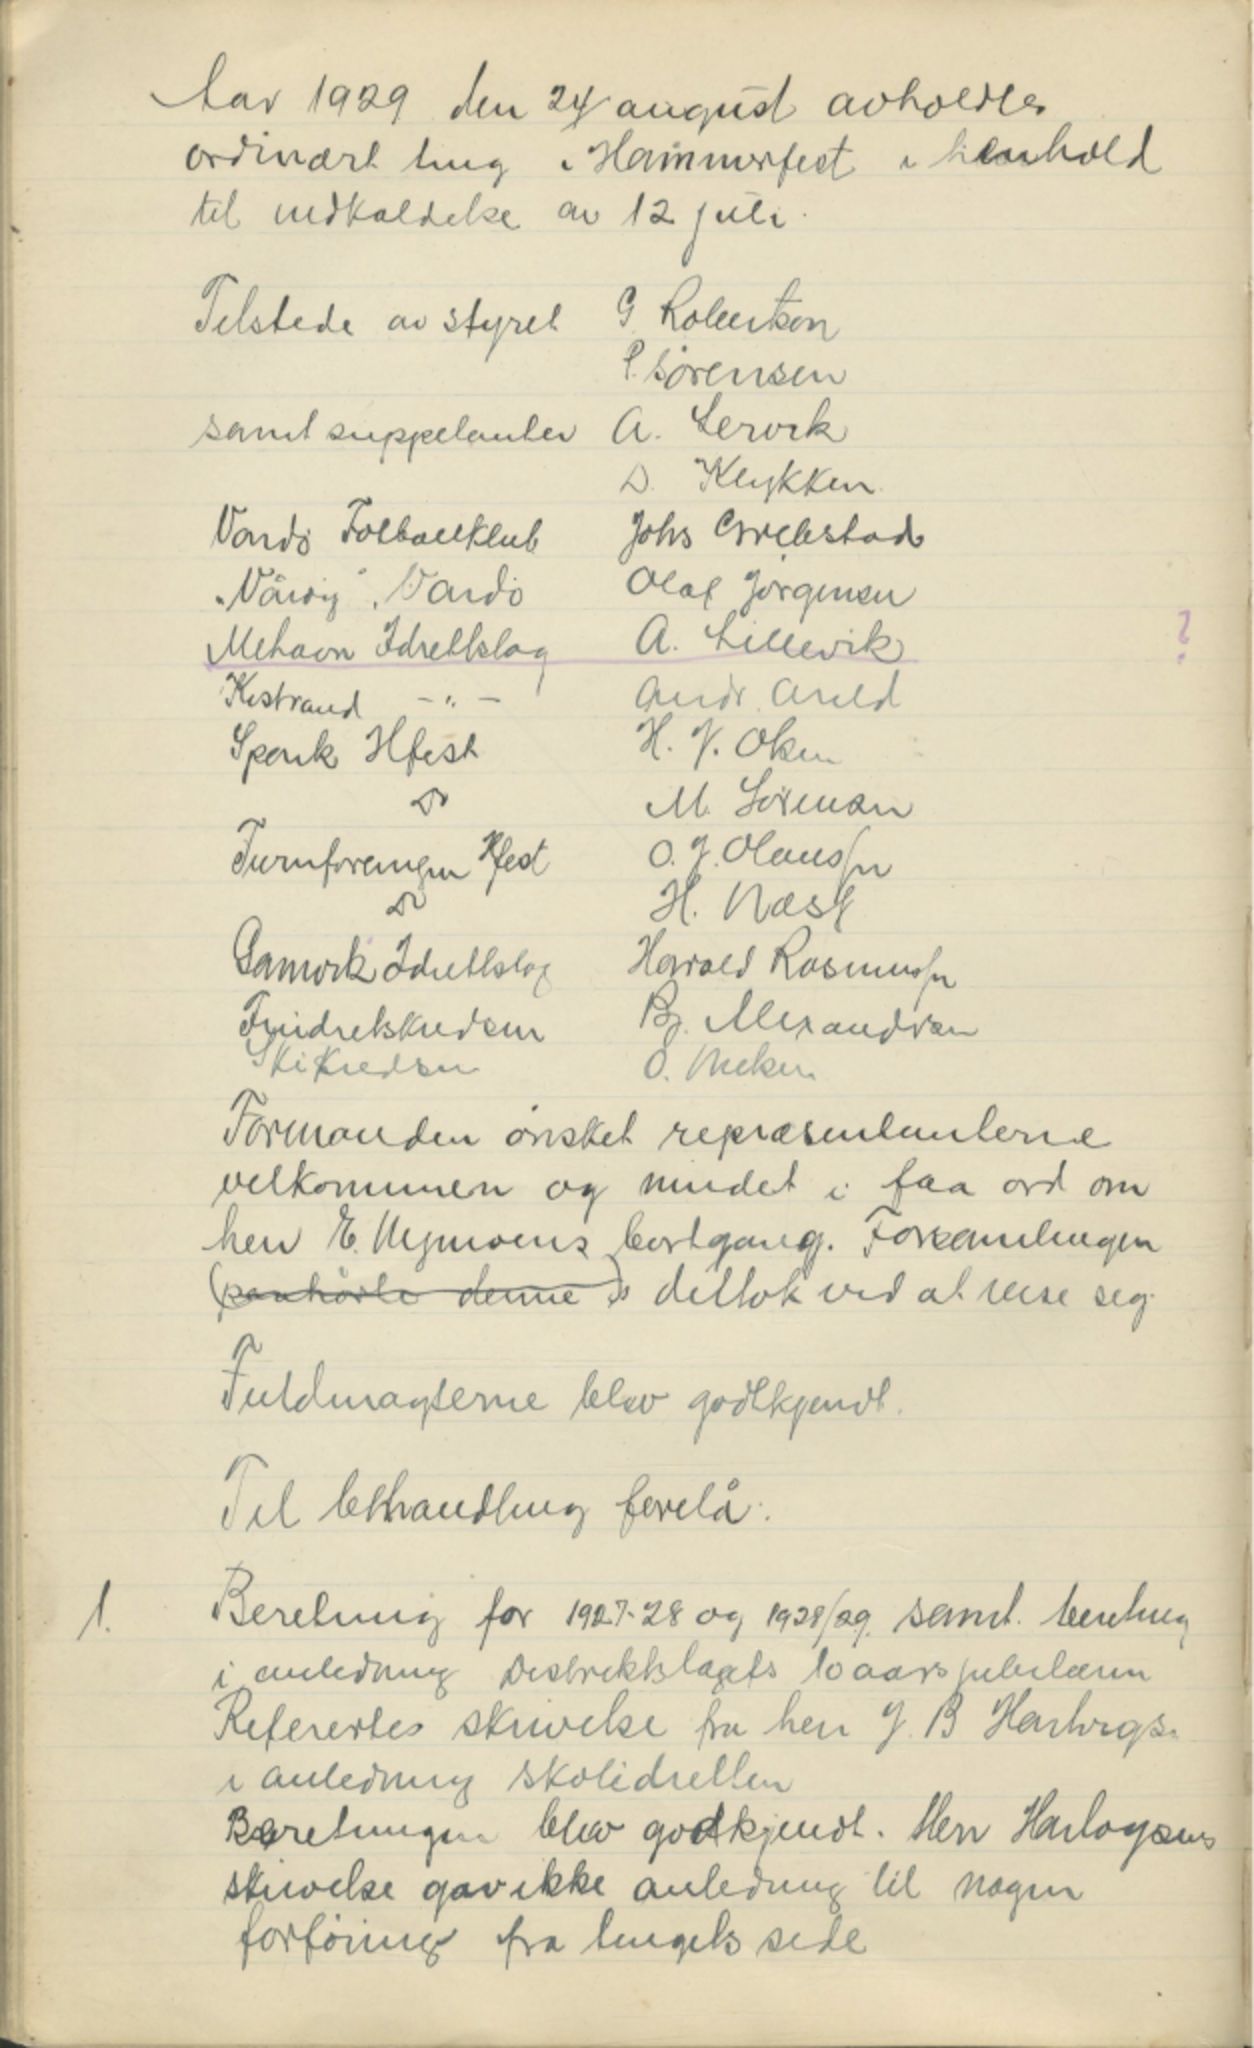 Aar 1929 den 24 august avholdtes
ordinært ting i Hammerfest i henhold
til indkaldelse av 12 juli.
Tilstede av styret G Robertson
P. Sørensen
samt suppelanter A. Lervik
D. Klykken
Vardö Fotballklub Johs Grebstad
"Vårig", Vardö Olaf Jörgensen
Mehavn Idrettslag A. Lillevik ?
Kistrand -"- Andr. Areld
Sponk Hfest H. J. Olsen
Do M. Sörensen
Turnforeningen Hfest O. J. Olaussen
Do H. Næss
Gamvik Idrettslag Harald Rasmussen
Friidretskredsen Bj. Alexandersen
Skikredsen O.
Formanden ønsket repræsentanterne
velkommen og mindet i faa ord om
herr E. bortgang. Forsamlingen
(paahörte denne) deltok ved at reise seg.
Fuldmagterne blev godtkjendt.
Til behandling forelå:
1. Beretning for 1927-28 og 1928/29. samt. beretning
i anledning Distriktslagets 10 aars jubilæum
Refertes skrivelse fra herr J. B
i anledning skolidretten
Beretningen blev godkjendt. Herr
skrivelse gav ikke anledning til nogen
forföining fra tingets side